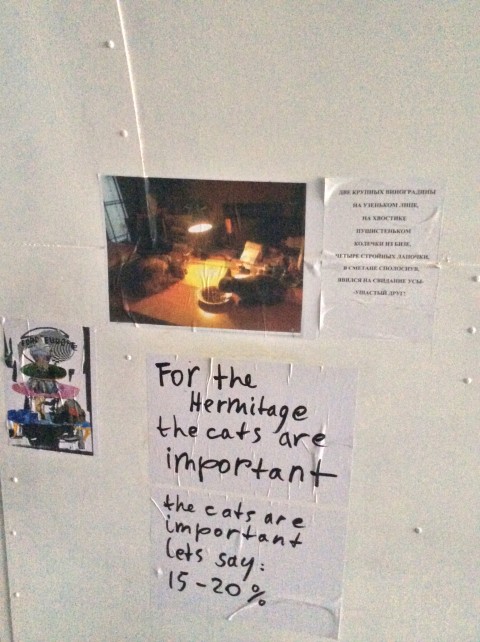 ДВЕ КРУПНЫХ ВИНОГРАДИНЫ
НА УЗЕНЬКОМ ЛИЦЕ,
НА ХВОСТИКЕ
ПУШИСТЕНЬКОМ
КОЛЕЧКИ ИЗ БИЗЕ,
ЧЕТЫРЕ СТРОЙНЫХ ЛАПОЧКИ,
В СМЕТАНЕ СПОЛОСНУВ,
ЯВИЛСЯ НА СВИДАНИЕ УСЫ-
УШАСТЫЙ ДРУГ!
EUROPE
For the
Hermitage
the cats are
important
the cats are
important
lets say:
15-20%